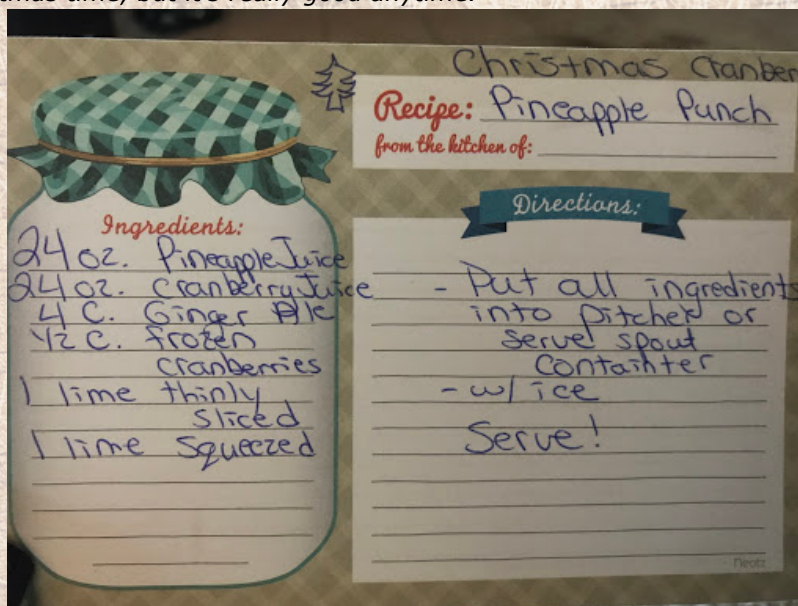 time, but it's really good anytime.
Christmas Cranber
Recipe: Pineapple Punch
from the kitchen of:
Ingredients:
24 oz. Pineapple Juice
24 oz. Cranberry Juice
4 C. Ginger Ale
1/2 C. frozen
cranberries
1 lime thinly
sliced
1 lime squeezed
Directions:
- Put all ingredients
into pitcher or
serve spout
containter
- w/ ice
Serve!